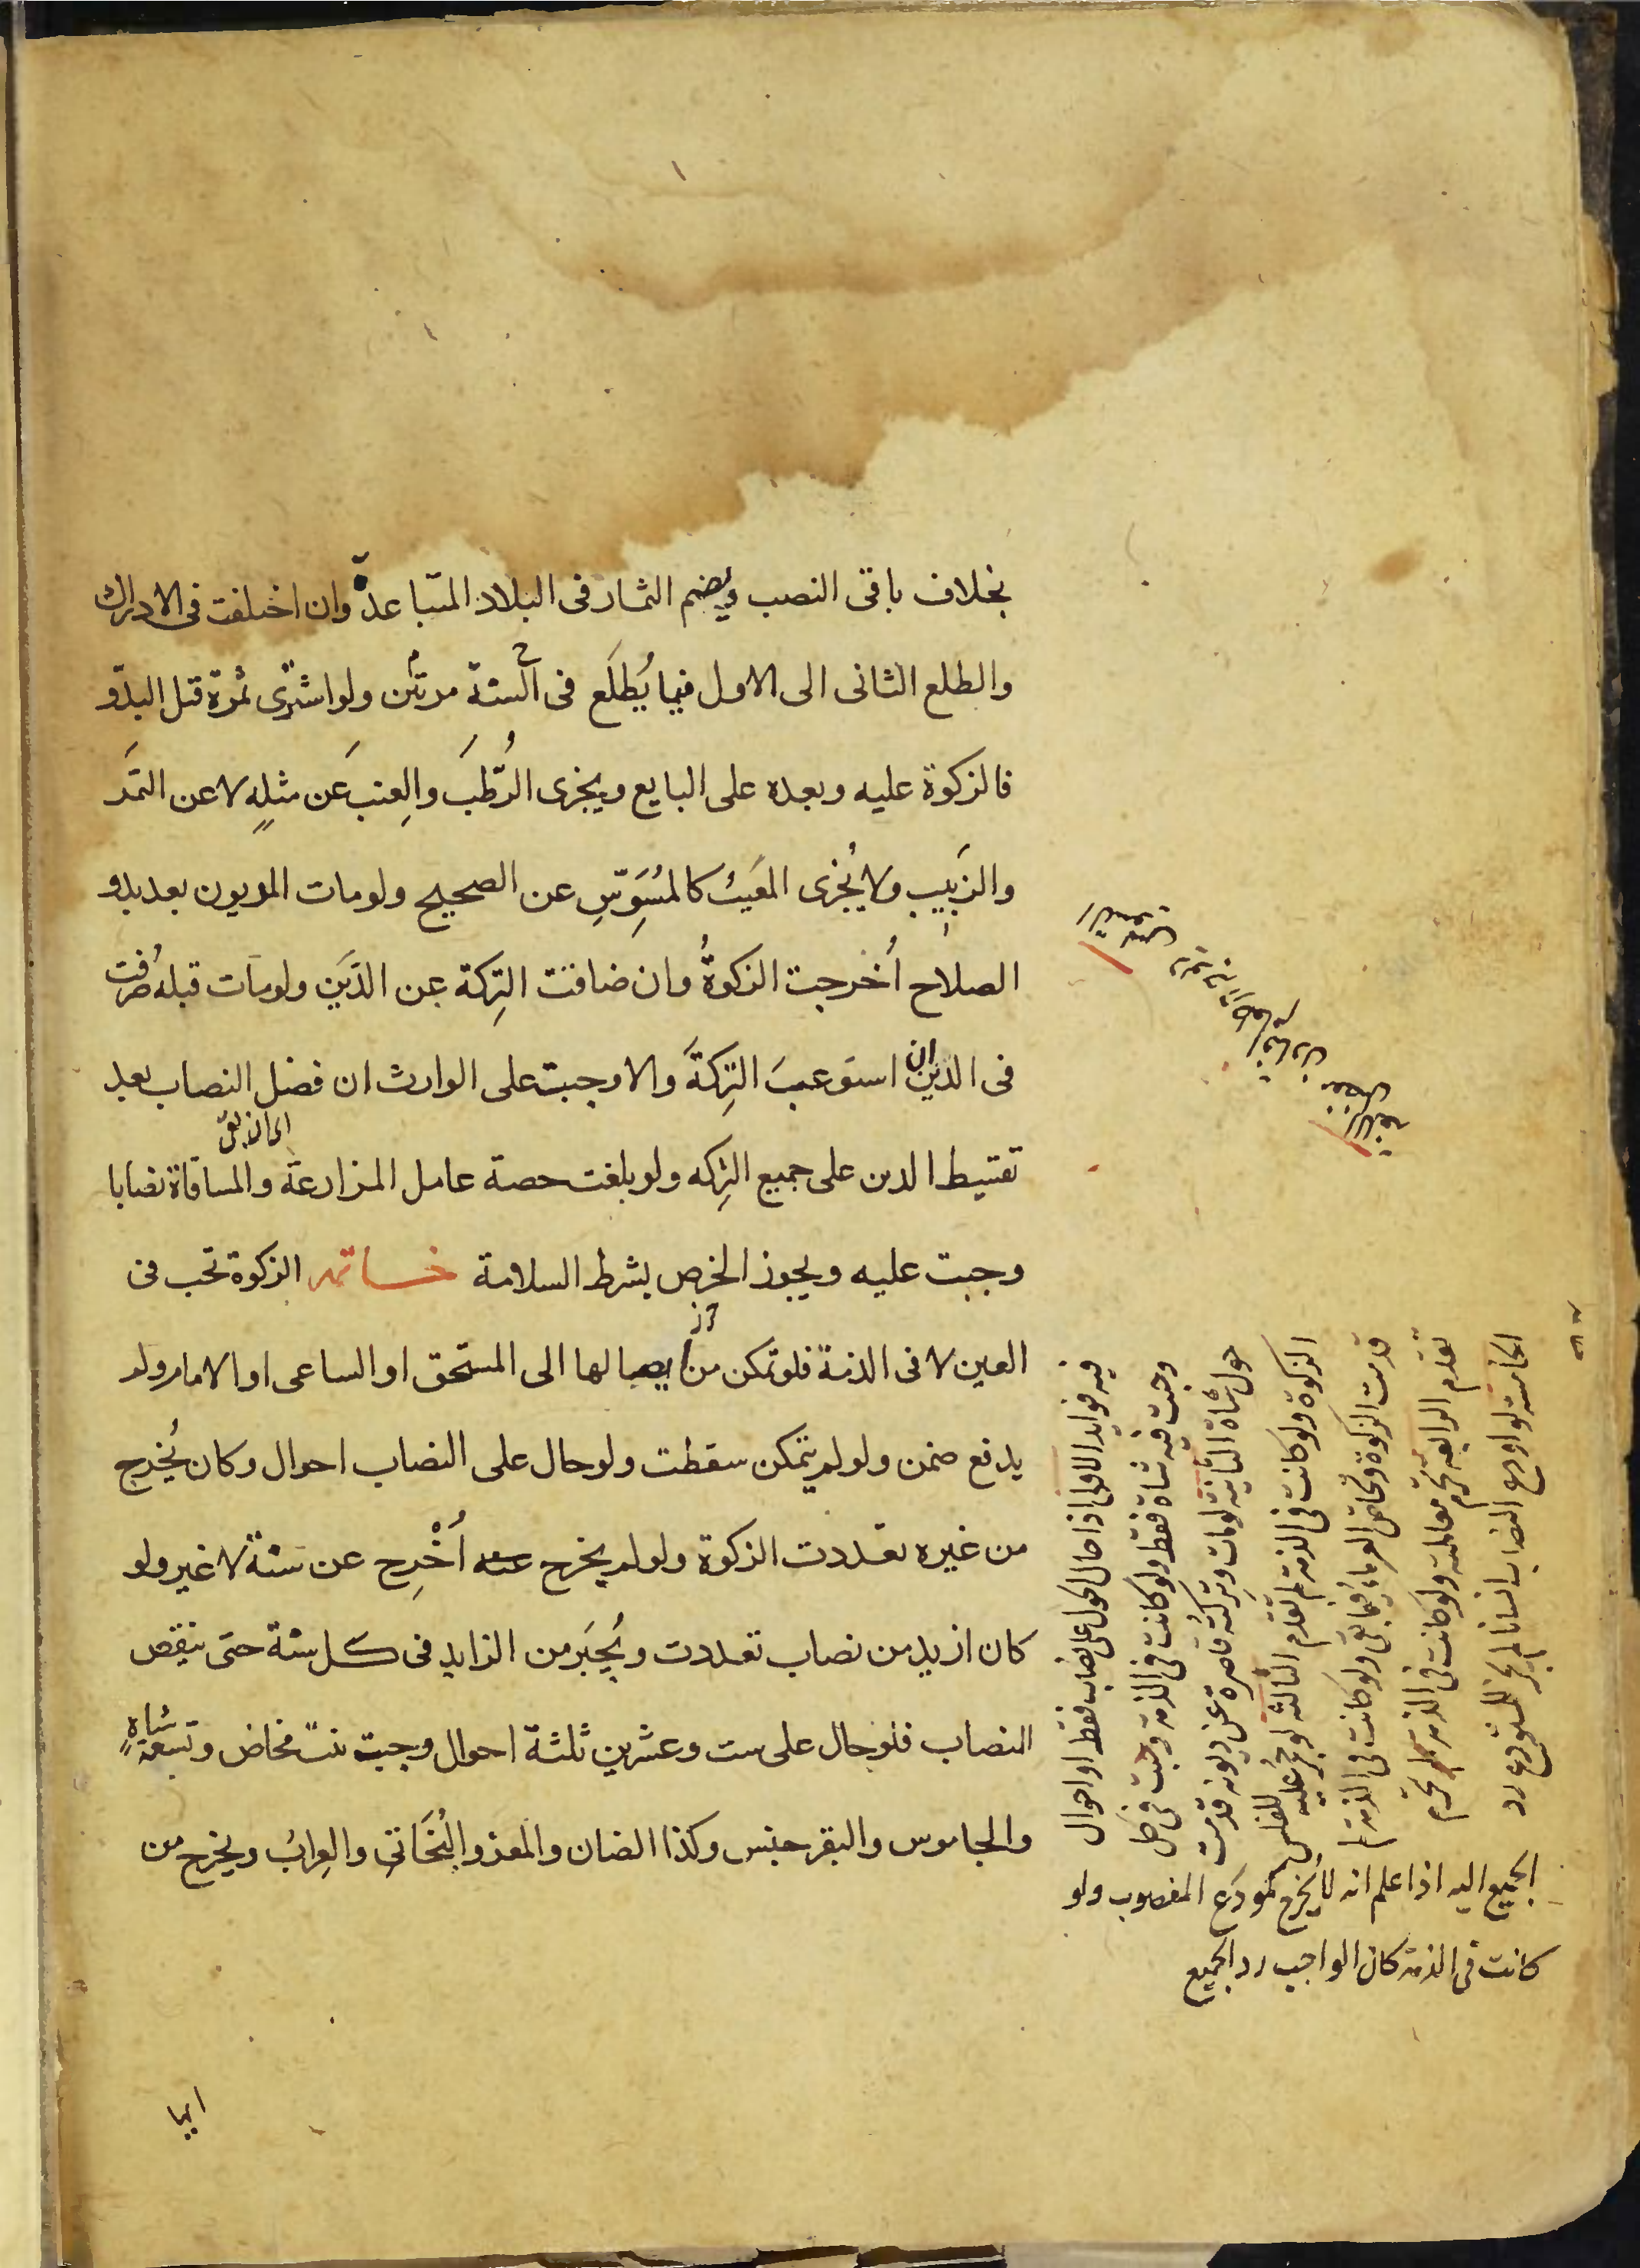 بخلاف باقى النصب ويضم الثمار فى البلاد المتباعدة وان اختلفت فى الادراك
والطلع الثانى الى الاول فيما يُطلَع فى السنة مرتين ولو اشترى ثمرة قبل البدّو
فالزكوة عليه وبعده على البايع ويجزى الرُّطَب والعِنَب عَن مثلِهِ لا عن التمَر
والزَبيِب ولا يُجْزى المَعيبُ كالمُسَوّسِ عن الصحيح ولو مات المديون بعد بدو
الصلاح اُخرجت الزكوةُ وان ضاقت التِركة عن الدَّين ولو مات قبله صُرفت
فى الدّين ان استوعبَ التِركَةَ والا وجبت على الوارث ان فضل النصاب بعد
تقسيط الدين على جميع التِركه ولو بلغت حصة عامل المزارعة والمساقاة نصابا
وجبت عليه ويجوز الخرص بشرط السلامة خاتمه الزكوة تجب فى
العين لا فى الذمة فلو تمكن من ايصالها الى المستحق او الساعى او الامام ولم
يدفع ضمن ولو لم يتمكن سقطت ولو حال على النصاب احوال وكان يُخرج
من غيره تعددت الزكوة ولو لم يخرج اُخْرِج عن سنة لا غير ولو
كان ازيد من نصاب تعددت ويُجبَر من الزايد فى كل سنة حتى ينقص
النصاب فلو حال على ست وعشرين ثلثة احوال وجبت بنت مخاض وتسعة شياهٍ
والجاموس والبقر جنس وكذا الضان والمعز والبُخَاتي والعِرابُ ويخرج من
فيه فوايد الاولى اذا حال الحول على نصاب فقط او احوال
وجبت فيه شاة فقط ولو كانت فى الذمة وجبت فى كل
حول شاة الثانية لو مات وتركته قاصرة عن ديونه قدمت
الزكوة ولو كانت فى الذمة لم تقدم الثالثه لو حجر عليه للفلس
قدمت الزكوة وتحاص الغرماء فيما بقى ولو كانت فى الذمة لم
تقدم الرابعة تحرم معاملته ولو كانت فى الذمة لم تحرم
الخامسة لو اودع النصاب انسانا لم يجز للمستودع رد
الجميع اليه اذا علم انه لا يخرج كمودَع المغصوب ولو
كانت فى الذمة كان الواجب رد الجميع